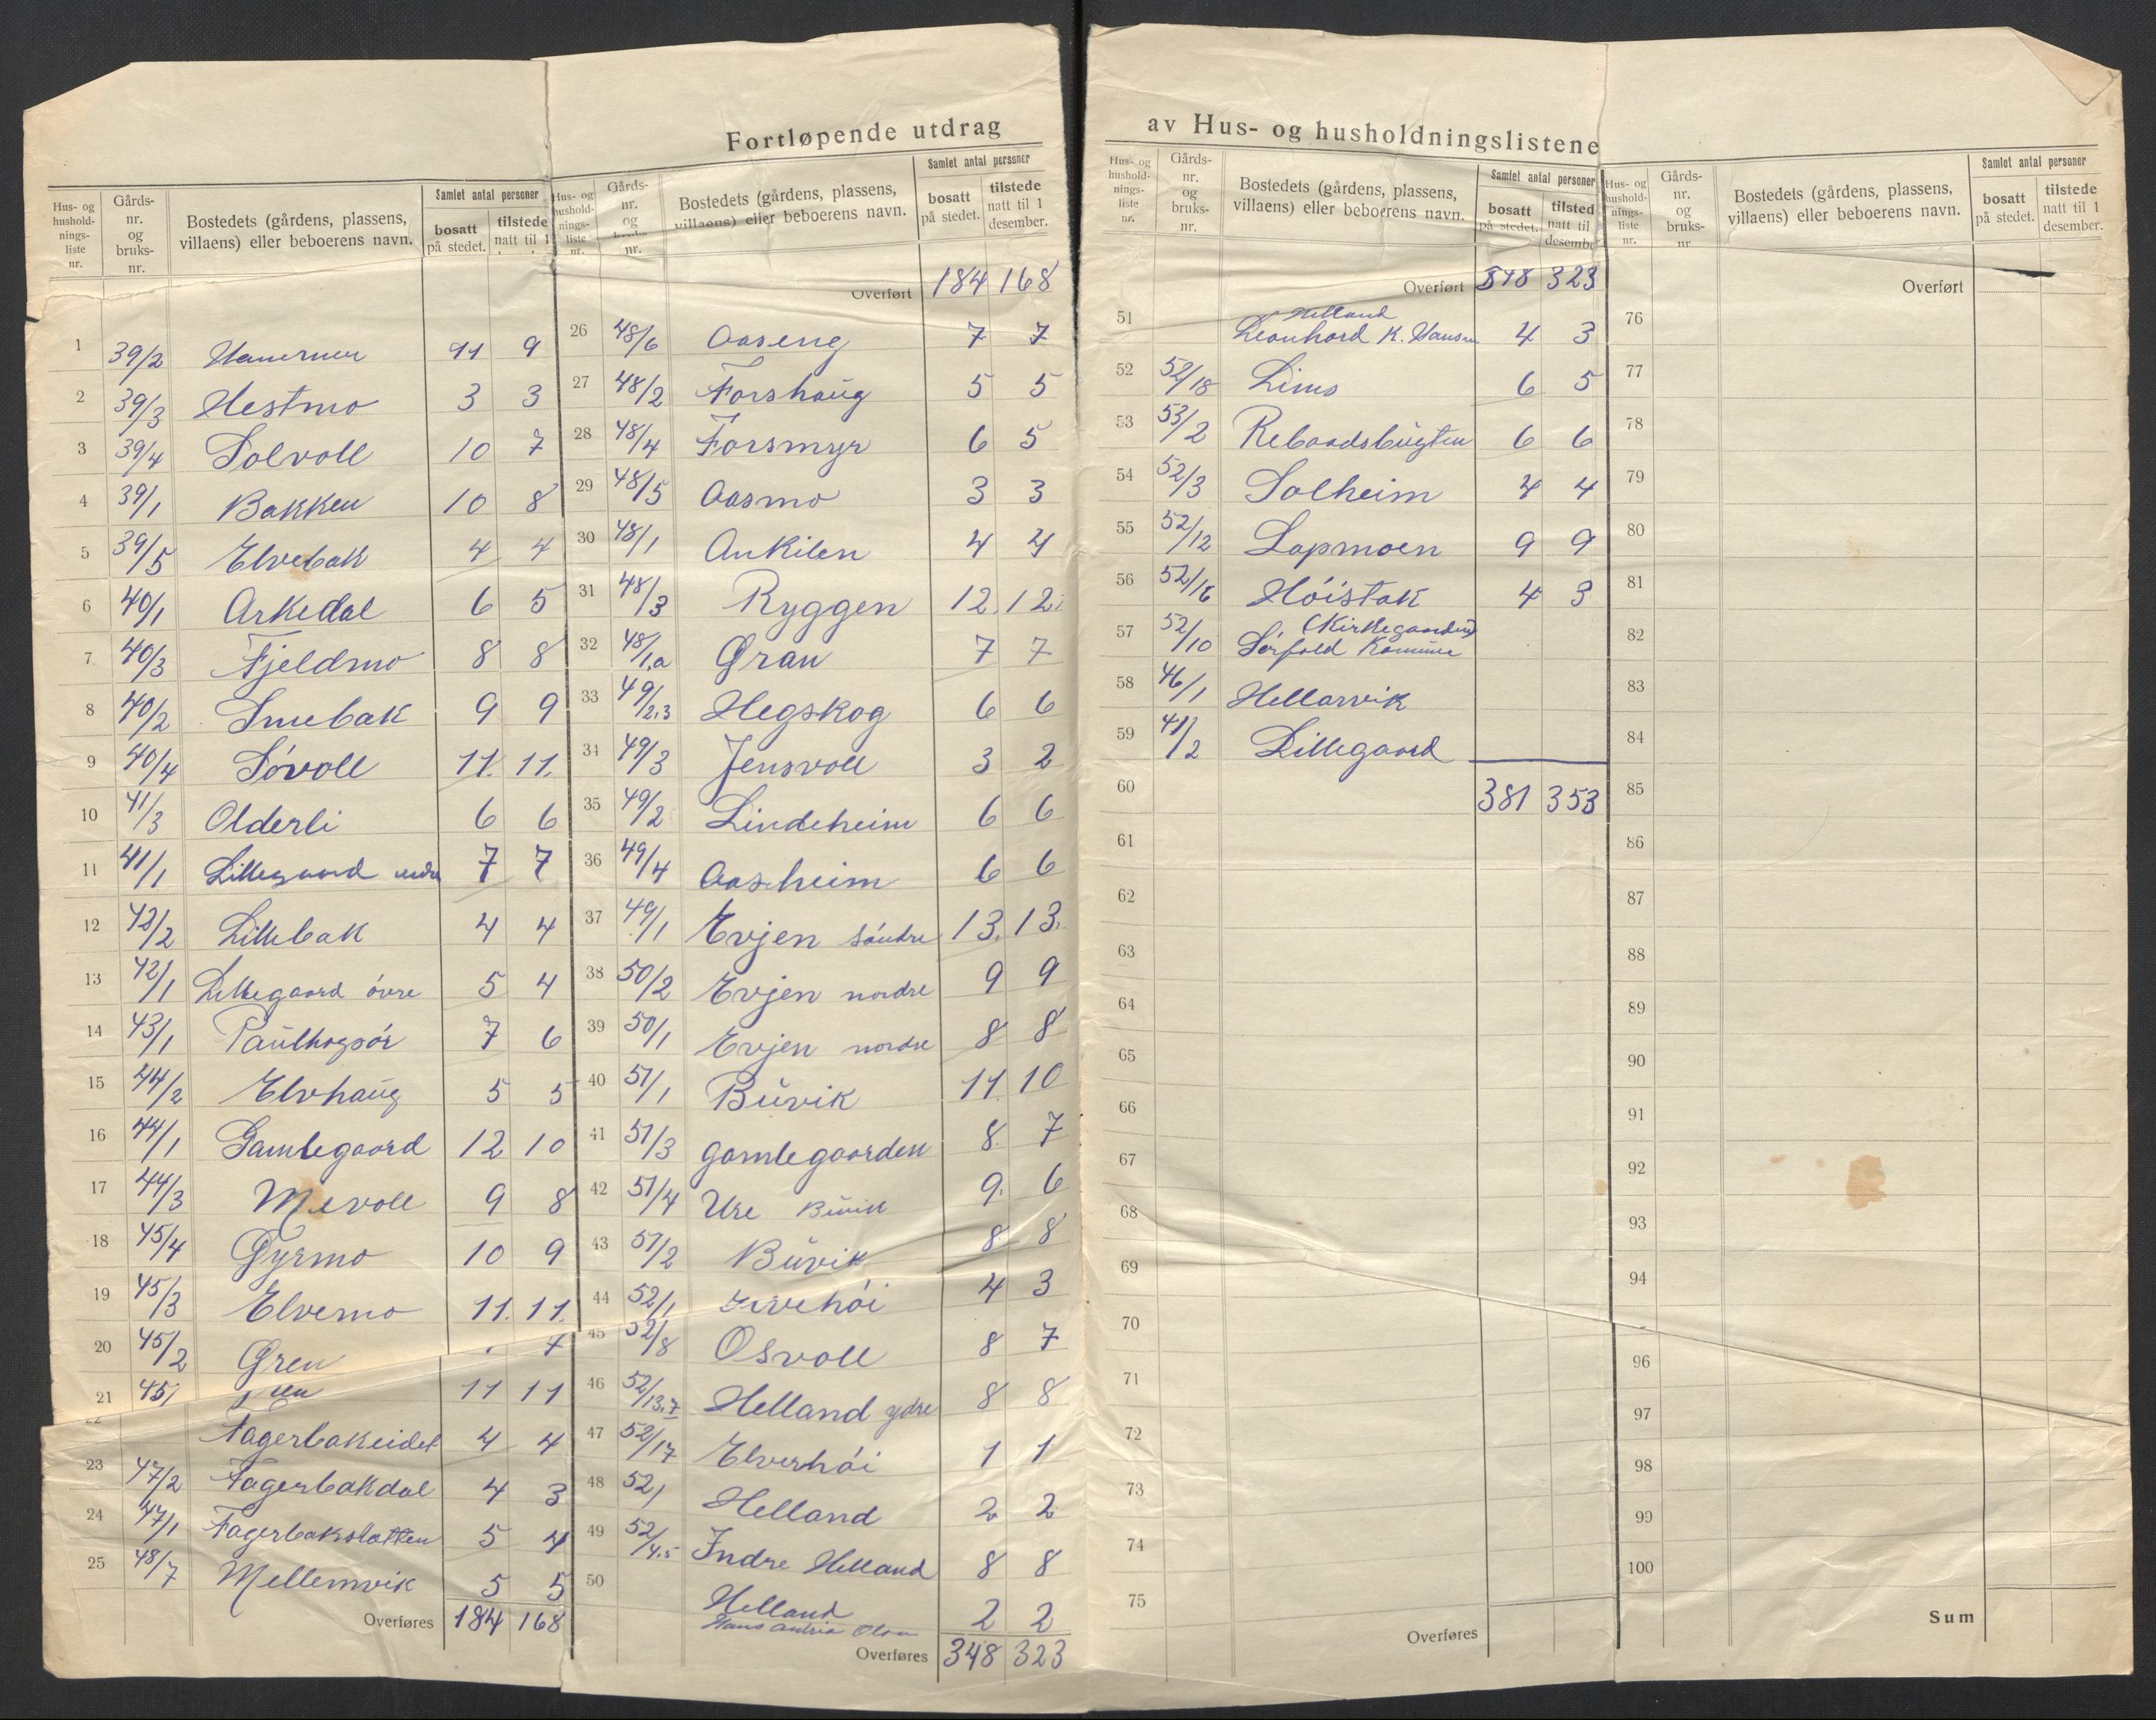 Fortløpende utdrag av Hus- og husholdningslistene
Hus- og husholdnings-liste nr. Gårds-nr. og bruks-nr. Bostedets (gårdens, plassens, villaens) eller beboerens navn. Samlet antal personer bosatt på stedet. tilstede natt til 1
1 39/2 11 9
2 39/3 Hestmo 3 3
3 39/4 Solvoll 10 7
4 39/1 Bakken 10 8
5 39/5 Elvebak 4 4
6 40/1 Arkedal 6 5
7 40/3 Fjeldmo 8 8
8 40/2 Smebak 9 9
9 40/4 Sóvoll 11. 11.
10 41/3 Olderli 6 6
11 41/1 Lillegaard 7 7
12 42/2 Lillebak 4 4
13 42/1 Lillegaard óvre 5 4
14 43/1 7 6
15 44/2 Elvhaug 5 5
16 44/1 Gamlegaard 12 10
17 44/3 Mevoll 9 8
18 45/4 Gyrmo 10 9
19 45/3 Elvemo 11. 11.
20 45/2 Gren 7
21 45/ 11 11
22 Fagerbakeidet 4 4
23 47/2 Fagerbakdal 4 3
24 47/1 Fagerbakslatten 5 4
25 48/7 Mellemvik 5 5
Overføres 184 168
Hus- og husholdnings-liste nr. Gårds-nr. og bruks-nr. Bostedets (gårdens, plassens, villaens) eller beboerens navn. Samlet antal personer bosatt på stedet. tilstede natt til 1 desember.
Overført 184 168
26 48/6 Aaseng 7 7
27 48/2 Forshaug 5 5
28 48/4 Forsmyr 6 5
29 48/5 Aasmo 3 3
30 48/1 Ankilen 4 4
31 48/3 Ryggen 12. 12.
32 48/1,a Gran 7 7
33 49/2,3 Hegskog 6 6
34 49/3 Jensvoll 3 2
35 49/2 Lindeheim 6 6
36 49/4 Aasheim 6 6
37 49/1 Evjen sóndre 13. 13.
38 50/2 Evjen nordre 9 9
39 50/1 Evjen nordre 8 8
40 51/1 Buvik 11. 10
41 51/3 Gamlegaarden 8. 7
42 51/4 Ure Buvik 9. 6
43 51/2 Buvik 8 8
44 52/1 4 3
45 52/8 Osvoll 8 7
46 52/13,7 Helland ydre 8 8
47 52/17 Elverhói 1 1
48 52/ Helland 2 2
49 52/4.5 Indre Helland 8 8
50 Helland 2 2
Hans Olsen
Overføres 348 323
Hus- og husholdnings-liste nr. Gårds-nr. og bruks-nr. Bostedets (gårdens, plassens, villaens) eller beboerens navn. Samlet antal personer bosatt på stedet. tilsted natt til desembe
Overført 348 323
Helland
51 Leonhard K. Hansen 4 3
52 52/18 Lims 6 5
53 53/2 Rebaadsbugten 6 6
54 52/3 Solheim 4 4
55 52/12 Lapmoen 9 9
56 52/16 Hóistak 4 3
(Kirkegaarden)
57 52/10 Sørfold Kommune
58 46/1 Hellarvik
59 41/2 Lillegaard
60 381 353
61
62
63
64
65
66
67
68
69
70
71
72
73
74
75
Overføres
Hus- og husholdnings-liste nr. Gårds-nr. og bruks-nr Bostedets (gårdens, plassens, villaens) eller beboerens navn. Samlet antal personer bosatt på stedet. tilstede natt til 1 desember.
Overført
76
77
78
79
80
81
82
83
84
85
86
87
88
89
90
91
92
93
94
96
97
98
99
100
Sum